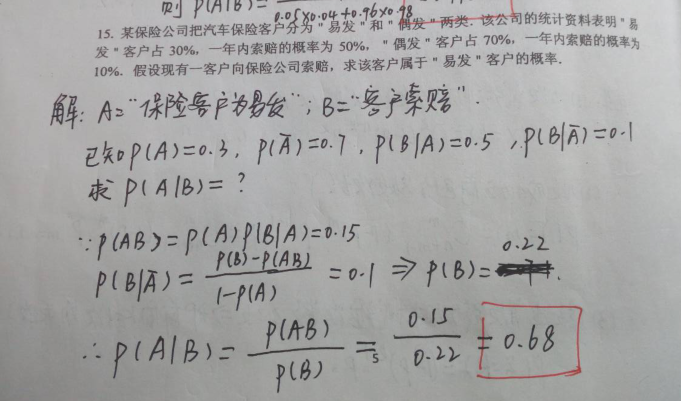 则 P(A|B)= 0.05×0.04+0.96×0.98
15. 某保险公司把汽车保险客户分为"易发"和"偶发"两类. 该公司的统计资料表明"易
发"客户占 30%, 一年内索赔的概率为 50%, "偶发"客户占 70%, 一年内索赔的概率为
10%. 假设现有一客户向保险公司索赔, 求该客户属于"易发"客户的概率.
解: A="保险客户为易发"; B="客户索赔".
已知P(A)=0.3, P(Ā)=0.7, P(B|A)=0.5, P(B|Ā)=0.1
求 P(A|B)=?
∵P(AB)=P(A)P(B|A)=0.15
P(B|Ā)= P(B)-P(AB) / 1-P(A) =0.1 ⇒ P(B)= 0.22.
∴P(A|B)= P(AB) / P(B) = 0.15 / 0.22 = 0.68